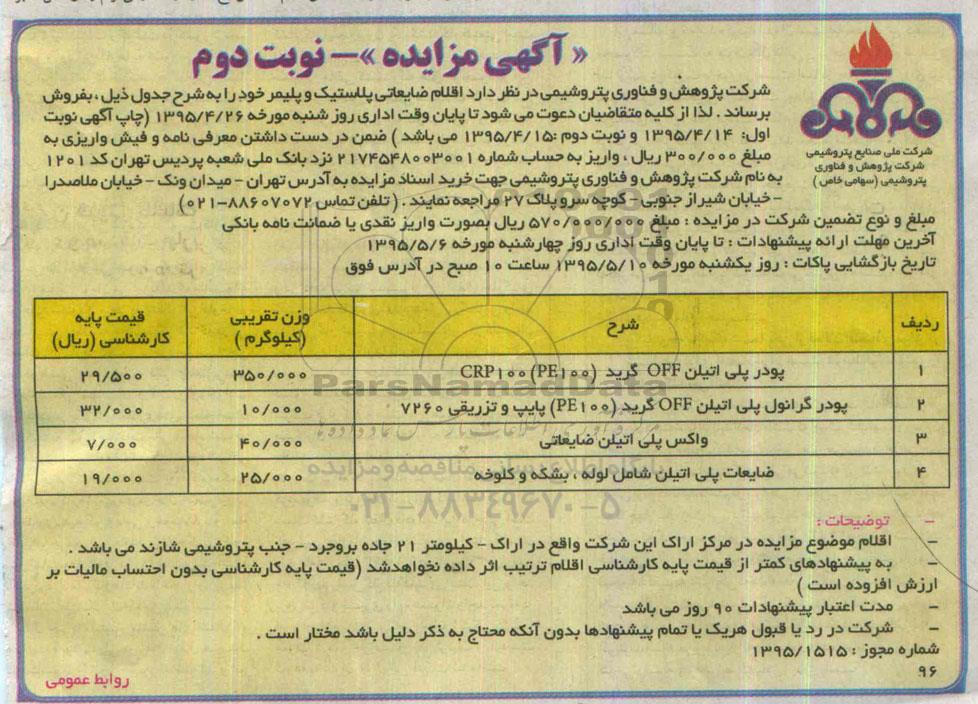 « آگهی مزایده »– نوبت دوم
شرکت ملی صنایع پتروشیمی
شرکت پژوهش و فناوری
پتروشیمی (سهامی خاص)
شرکت پژوهش و فناوری پتروشیمی در نظر دارد اقلام ضایعاتی پلاستیک و پلیمر خود را به شرح جدول ذیل ، بفروش
برساند . لذا از کلیه متقاضیان دعوت می شود تا پایان وقت اداری روز شنبه مورخه ۱۳۹۵/۴/۲۶ (چاپ آگهی نوبت
اول: ۱۳۹۵/۴/۱۴ و نوبت دوم :۱۳۹۵/۴/۱۵ می باشد ) ضمن در دست داشتن معرفی نامه و فیش واریزی به
مبلغ ۳۰۰/۰۰۰ ریال ، واریز به حساب شماره ۲۱۷۴۵۴۸۰۰۳۰۰۱ نزد بانک ملی شعبه پردیس تهران کد ۱۲۰۱
به نام شرکت پژوهش و فناوری پتروشیمی جهت خرید اسناد مزایده به آدرس تهران – میدان ونک – خیابان ملاصدرا
– خیابان شیراز جنوبی – کوچه سرو پلاک ۲۷ مراجعه نمایند . ( تلفن تماس ۸۸۶۰۷۰۷۲–۰۲۱)
مبلغ و نوع تضمین شرکت در مزایده : مبلغ ۵۷۰/۰۰۰/۰۰۰ ریال بصورت واریز نقدی یا ضمانت نامه بانکی
آخرین مهلت ارائه پیشنهادات : تا پایان وقت اداری روز چهارشنبه مورخه ۱۳۹۵/۵/۶
تاریخ بازگشایی پاکات : روز یکشنبه مورخه ۱۳۹۵/۵/۱۰ ساعت ۱۰ صبح در آدرس فوق
ردیف شرح وزن تقریبی (کیلوگرم ) قیمت پایه کارشناسی (ریال)
۱ پودر پلی اتیلن OFF گرید (PE۱۰۰) CRP۱۰۰ ۳۵۰/۰۰۰ ۲۹/۵۰۰
۲ پودر گرانول پلی اتیلن OFF گرید (PE۱۰۰) پایپ و تزریقی ۷۲۶۰ ۱۰/۰۰۰ ۳۲/۰۰۰
۳ واکس پلی اتیلن ضایعاتی ۴۰/۰۰۰ ۷/۰۰۰
۴ ضایعات پلی اتیلن شامل لوله ، بشکه و کلوخه ۲۵/۰۰۰ ۱۹/۰۰۰
ParsNamadData
۰۲۱–۸۸۳۴۹۶۷۰–۵
– توضیحات :
– اقلام موضوع مزایده در مرکز اراک این شرکت واقع در اراک – کیلومتر ۲۱ جاده بروجرد – جنب پتروشیمی شازند می باشد .
– به پیشنهادهای کمتر از قیمت پایه کارشناسی اقلام ترتیب اثر داده نخواهدشد (قیمت پایه کارشناسی بدون احتساب مالیات بر
ارزش افزوده است )
– مدت اعتبار پیشنهادات ۹۰ روز می باشد
– شرکت در رد یا قبول هریک یا تمام پیشنهادها بدون آنکه محتاج به ذکر دلیل باشد مختار است .
شماره مجوز : ۱۳۹۵/۱۵۱۵
۹۶
روابط عمومی